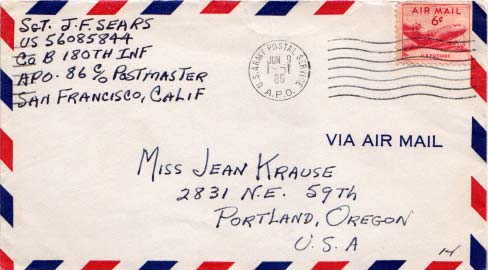 SGT. J.F. SEARS
US 56085844
CO B 180TH INF
APO-86 C/O POSTMASTER
SAN FRANCISCO, CALIF
U.S. ARMY POSTAL SERVICE
JUN 9
86
A.P.O.
AIR MAIL
6¢
U.S. POSTAGE
VIA AIR MAIL
MISS JEAN KRAUSE
2831 N.E. 59th
PORTLAND, OREGON
U.S.A
14